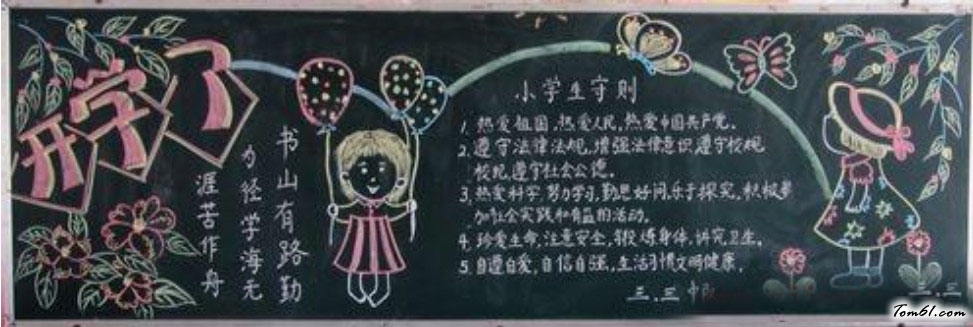 开学了
书山有路勤
为径学海无
涯苦作舟
小学生守则
1.热爱祖国,热爱人民,热爱中国共产党。
2.遵守法律法规,增强法律意识.遵守校规
校纪,遵守社会公德。
3.热爱科学,努力学习,勤思好问,乐于探究,积极参
加社会实践和有益的活动。
4.珍爱生命,注意安全,锻炼身体,讲究卫生。
5.自遵自爱,自信自强,生活习惯文明健康。
三.三中队
三.三
Tom61.com